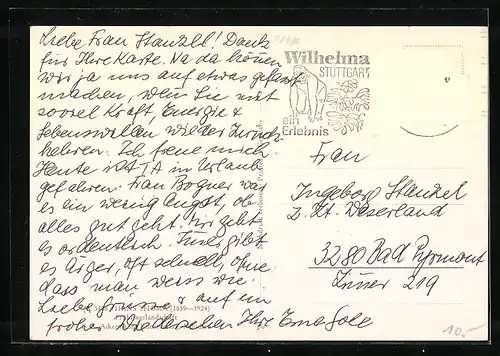 Liebe Frau Stanzel! Dank
für Ihre Karte. Na da können
wir ja uns auf etwas gefasst
machen, wenn Sie mit
soviel Kraft, Energie &
Lebenswillen wieder zurück-
kehren. Ich freue mich.
Heute ist IA in Urlaub
gefahren. Frau Bogner war
es ein wenig Angst, ob
alles gut geht. Mir geht
es ordentlich. Immer gibt
es Ärger, oft schnell, ohne
dass man weiss wie.
Liebe Grüsse & auf ein
frohes Wiedersehen Ihre
(1839—1924)
Wilhelma
STUTTGART
ein
Erlebnis
Frau
Ingeborg Stanzel
z. Zt. Weserland
3280 Bad Pyrmont
Zimmer 219
10.-